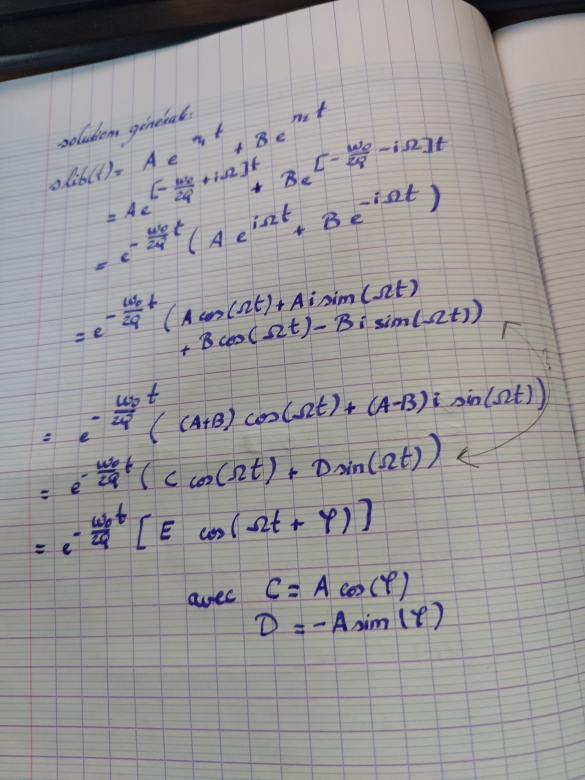 solution générale:
slib(t) = A e^{r₁ t} + B e^{r₂ t}
= A e^{[-ω₀/2Q + iΩ]t} + B e^{[-ω₀/2Q - iΩ]t}
= e^{-ω₀/2Q t} ( A e^{iΩt} + B e^{-iΩt} )
= e^{-ω₀/2Q t} ( A cos(Ωt) + A i sin(Ωt)
+ B cos(Ωt) - B i sin(Ωt))
= e^{-ω₀/2Q t} ( (A+B) cos(Ωt) + (A-B) i sin(Ωt))
= e^{-ω₀/2Q t} ( C cos(Ωt) + D sin(Ωt))
= e^{-ω₀/2Q t} [ E cos(Ωt + φ) ]
avec C = A cos(φ)
D = - A sin(φ)